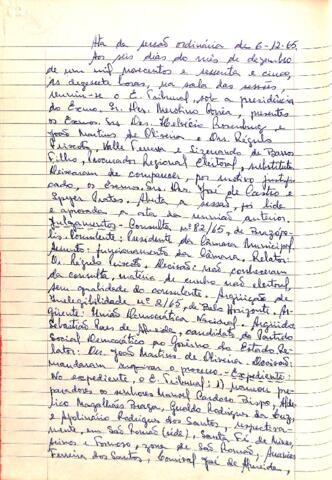 Ata da sessão ordinária de 6-12-65.
Aos seis dias do mês de dezembro
de um mil novecentos e sessenta e cinco,
às dezesseis horas, na sala das sessões,
reuniu-se o E. Tribunal, sob a presidência
do Exmo. Sr. Des. presentes
os Exmos. Srs. Des. Helvécio Rosenburg e
João Martins de Oliveira e Drs. Régulo
Peixoto, Valle Ferreira e de Barros
Filho, Procurador Regional Eleitoral, substituto.
Deixaram de comparecer, por motivo justifi-
cado, os Exmos. Srs. Des. José de Castro e
Aberta a sessão, foi lida
e aprovada a ata da reunião anterior.
Julgamentos - Consulta nº 82/65, de Brazópo-
lis. Consulente: Presidente da Câmara Municipal.
Assunto: funcionamento da Câmara. Relator:
Dr. Régulo Peixoto. Decisão: não conheceram
da consulta, matéria de cunho não eleitoral,
sem qualidade do consulente. Arguição de
Inelegibilidade nº 2/65, de Belo Horizonte. Ar-
güente: União Democrática Nacional. Arguido:
Sebastião Paes de Almeida, candidato do Partido
Social Democrático ao Govêrno do Estado. Re-
lator: Des. João Martins de Oliveira. Decisão:
mandaram arquivar o processo. - Expediente:
No expediente, o E. Tribunal: 1) nomeou pre-
paradores os senhores Manoel Cardoso Bispo, Alde-
rico Magalhães Braga, Geraldo Rodrigues da Cruz,
e Apolinário Rodrigues dos Santos, respectiva-
mente, em São Romão (sede), Santa Fé de Minas,
e Formoso, zona de São Romão;
Ferreira dos Santos, José de Almeida,